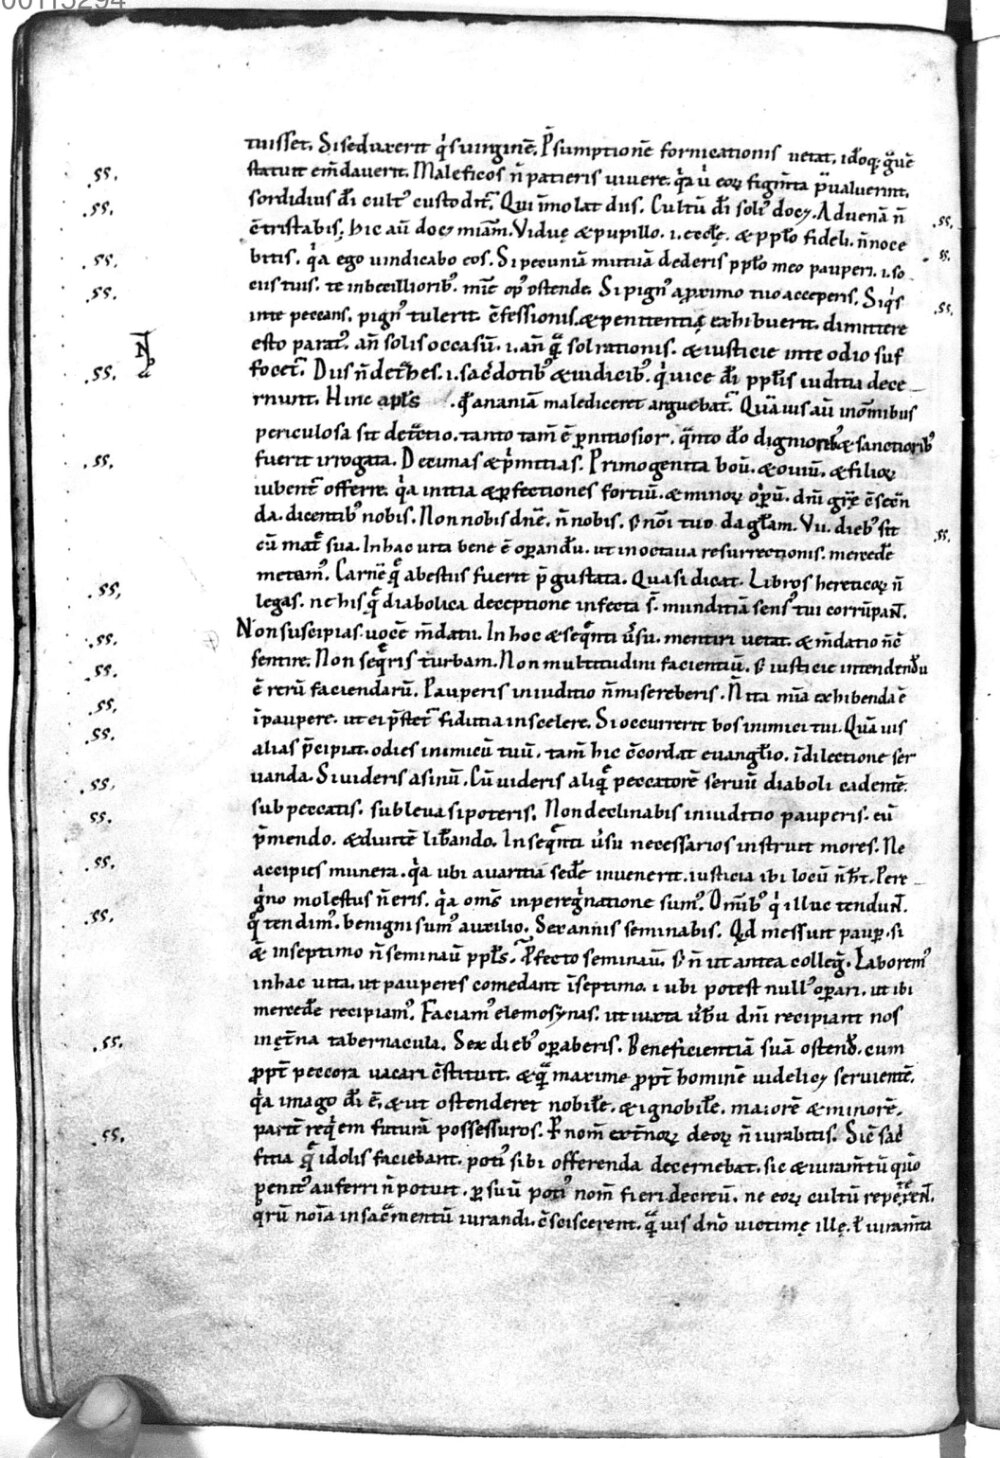 00115294
tuisset. Si seduxerit q̓s uirginē. P̄sumptionē fornicationis uetat. idoq; g̓uē
statuit em̄dauerit. Maleficos n̄ patieris uiuere. q̓a ū eoꝝ figm̄ta p̄ualuerint.
sordidius d̄i cult᾽ custodit᷑. Qui īmolat diis. Cultū d̄i soli᾽ docꝫ. Aduenā n̄
c̄tristabis. hic aū docꝫ mīam. Viduę & pupillo. i. eccłę. & ppło fideli. n̄ noce
bitis. q̓a ego uindicabo eos. Si pecuniā mutuā dederis ppło meo pauperi. i. so
ciis tuis. te imbecilliorib᾽. mīe op᾽ ostende. Si pign᾽ a ꝓximo tuo acceperis. Si q̓s
in te peccans. pign᾽ tulerit. c̄fessionis. & penitentię exhibuerit. dimittere
esto parat᾽. an̄ solis occasū. i. an̄ q̄ sol rationis. & iusticie in te odio suf
focet᷑. Diis n̄ det᷑hes. i. sac̄dotib᾽ & iudicib᾽. q̓ uice d̄i ppłis iuditia dece
rnunt. Hinc apłs . q̓ ananiam malediceret arguebat᷑. Quāuis aū in om̄ibus
periculosa sit det᷑ctio. tanto tam̄ ē p̄nitiosior. q̄nto d̄o dignioribꝫ & sanctiorib᾽
fuerit irrogata. Decimas & p̓mitias. Primogenita boū. & ouiū. & filioꝝ
iubent᷑ offerre. q̓a initia & ꝑfectiones fortiū. & minoꝝ opꝑū. dn̄i grē c̄secn̄
da. dicentib᾽ nobis. Non nobis dn̄e. n̄ nobis. s̄ nōi tuo. da głam. Vii. dieb᾽ sit
cū mat᷑ sua. In hac uita bene ē oꝑandū. ut in octaua resurrectionis. mercedē
metam᾽. Carnē q̄ a bestiis fuerit p̄gustata. Quasi dicat. Libros hereticoꝝ n̄
legas. ne his q̄ diabolica deceptione infecta s̄. munditiā sens᾽ tui corrūpant.
Non suscipias uocē m̄datii. In hoc & seq̄nti ūsu. mentiri uetat. & m̄datio n̄c̄
sentire. Non seq̄ris turbam. Non multitudini facientiū. s̄ iusticie intendendū
ē rerū faciendarū. Pauperis in iuditio n̄ misereberis. N̄ ita mīa exhibenda ē
ī paupere. ut ei p̄stet᷑ fiditia in scelere. Si occurrerit bos inimici tui. Quāuis
alias p̄cipiat. odies inimicū tuū. tam̄ hic c̄cordat euangłio. ī dilectione ser
uanda. Si uideris asinū. Cū uideris aliq̄ peccatorē seruū diaboli cadentē.
sub peccatis. subleua si poteris. Non declinabis in iuditio pauperis. eū
p̄mendo. & diuitē lib̄ando. In seq̄nti ūsu necessarios instruit mores. Ne
accipies munera. q̓a ubi auaritiā sedē inuenerit. iusticia ibi locū n̄ ht̄. Pere
g̓no molestus n̄ eris. q̓a om̄s in peregrinatione sum᾽. Om̄ib᾽ q̓ illuc tendunt.
q̓ tendim᾽. benigni sum᾽ auxilio. Sex annis seminabis. Qd̄ messuit pauꝑ. si
& in septimo n̄ seminaū ppłs. Ꝓfecto seminaū. s̄ n̄ ut antea colleg̓. Laborem᾽
in hac uita. ut pauperes comedant ī septimo. i ubi potest null᾽ oꝑari. ut ibi
mercedē recipiam᾽. Faciam᾽ elemosynas. ut iuxta ūbū dn̄i recipiant nos
in ęt᷑na tabernacula. Sex dieb᾽ oꝑaberis. Beneficientiā suā ostend̄. cum
ꝓpt᷑ peccora uacari c̄stituit. & q̄ maxime ꝓpt᷑ hominē uidelicꝫ seruientē.
q̓a imago d̄i ē. & ut ostenderet nobilē. & ignobilē. maiorē & minorē.
paritē req̓em futurā possessuros. P̄ nom̄ ext᷑noꝝ deoꝝ n̄ iurabitis. Sic̄ sac̄
fitia q̄ idolis faciebant. poti᾽ sibi offerenda decernebat. sic & iuram̄tū q̓o
penit᾽ auferri n̄ potuit. ꝑ suū poti᾽ nom̄ fieri decreū. ne eoꝝ cultū repet᷑ent.
qrū noīa in sac̄mentū iurandi. c̄sciscerent. q̄uis dn̄o uictimę illę. ł iuram̄ta